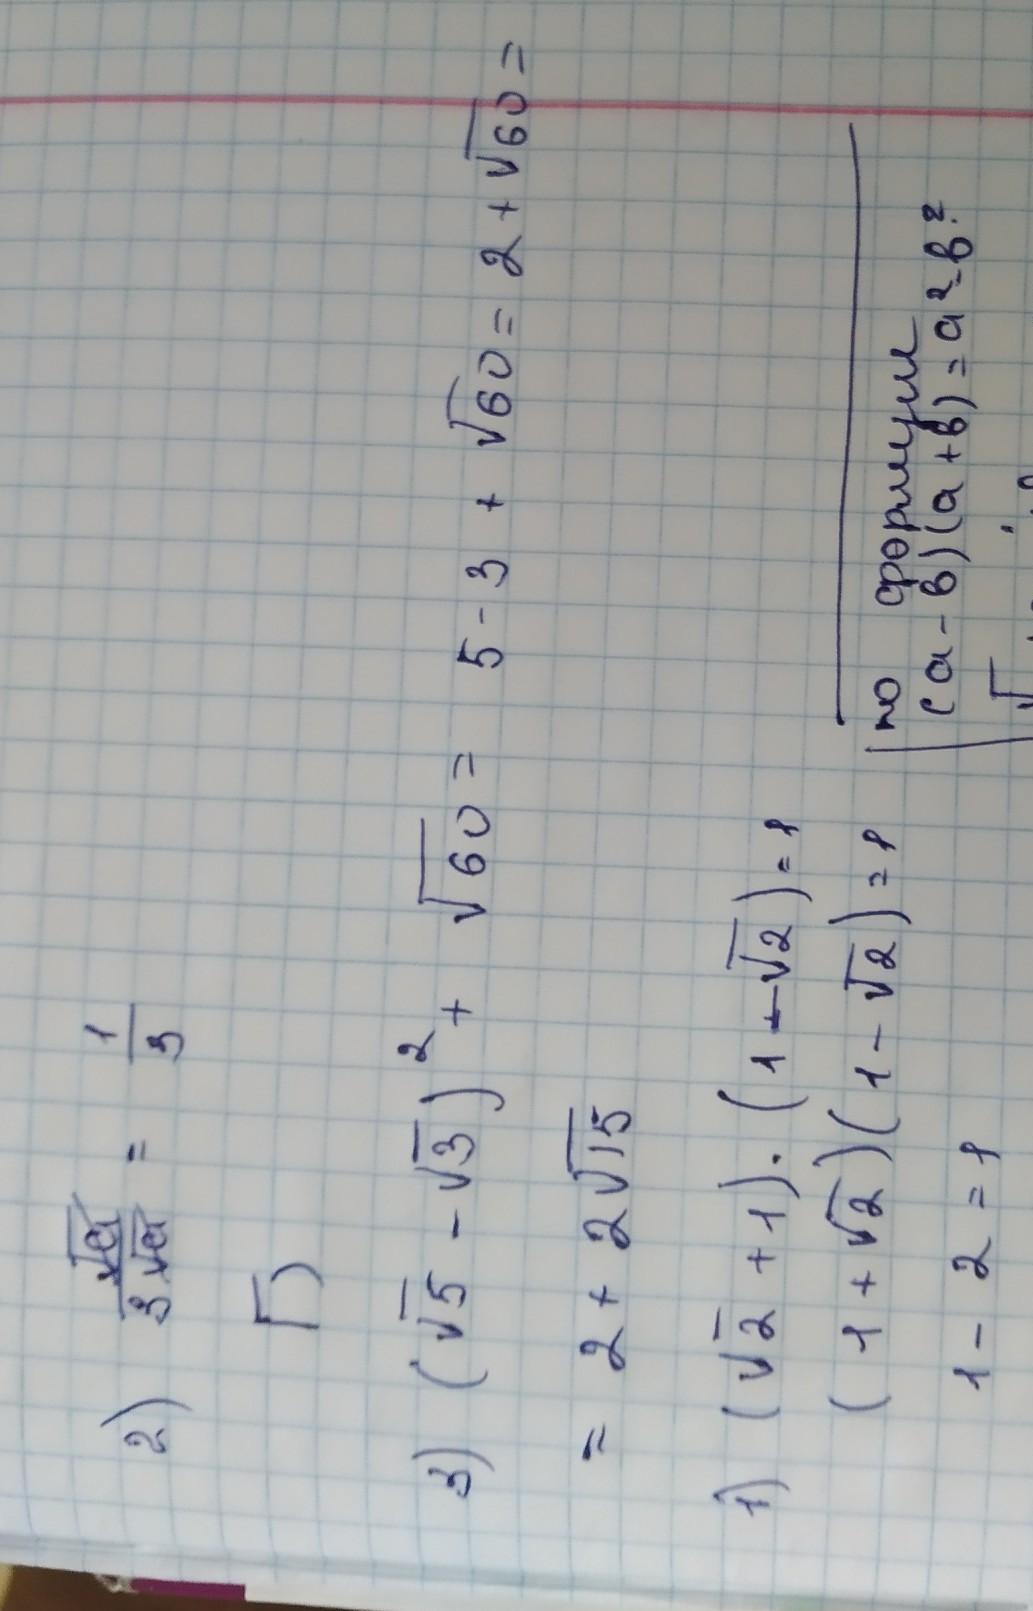 2) √a/3√a = 1/3
Г)
3) (√5 - √3)² + √60 = 5 - 3 + √60 = 2 + √60 =
= 2 + 2√15
1) (√2 + 1) · (1 - √2) = 1
(1 + √2)(1 - √2) = 1
1 - 2 = 1
по формули
(a - b)(a + b) = a² - b²